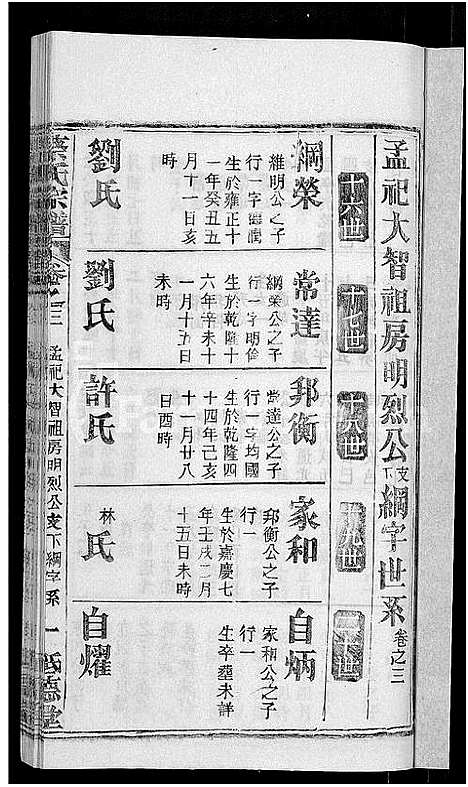 孟祀大智祖房明烈公支下綱字世系 卷之三
十六世
十七世
十八世
十九世
二十世
綱榮
維明公之子
行一字
生於雍正十
一年癸丑五
月十一日亥
時
劉氏
常達
綱榮公之子
行一字明倫
生於乾隆十
六年辛未十
一月十五日
未時
劉氏
邦衡
常達公之子
行一字均國
生於乾隆四
十四年己亥
十一月廿八
日酉時
許氏
家和
邦衡公之子
行一
生於嘉慶七
年壬戌二月
十五日未時
林氏
自炳
家和公之子
行一
生卒塟未詳
自燿
氏宗譜 卷之三 孟祀大智祖房明烈公支下綱字系 一 德堂